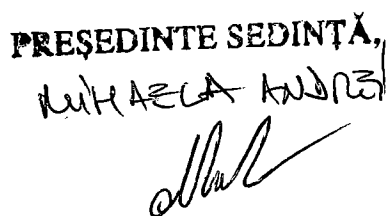 PREŞEDINTE SEDINȚĂ,
MIHAELA ANDREI